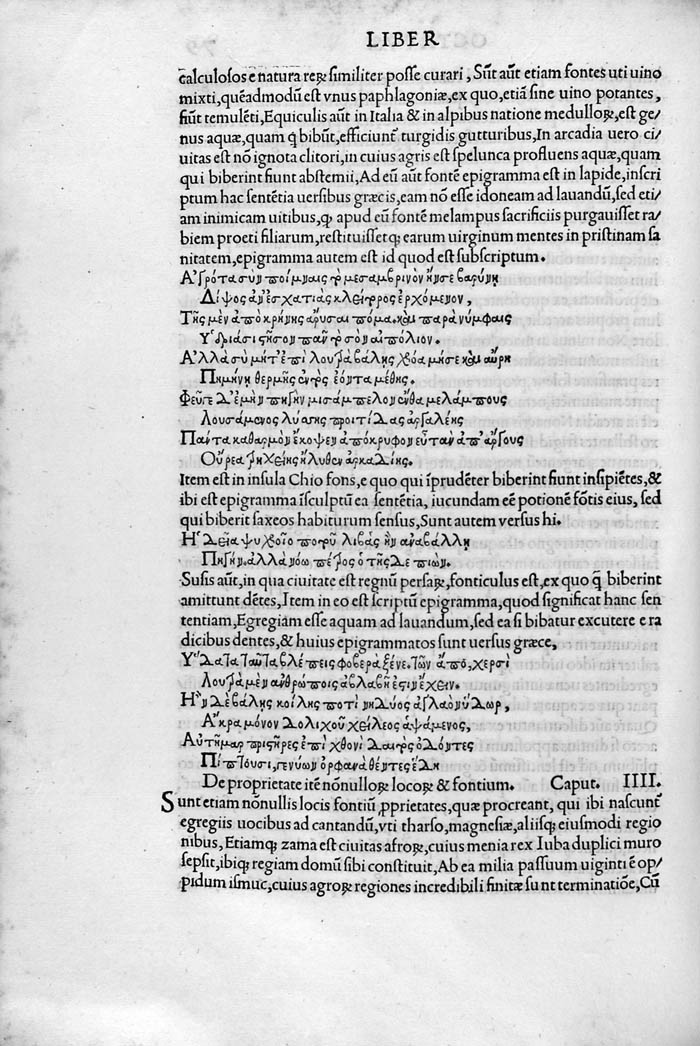 LIBER
calculosos e natura reꝝ similiter posse curari, Sũt aũt etiam fontes uti uino
mixti, quẽadmodũ est vnus paphlagoniæ, ex quo, etiã sine uino potantes,
fiũt temulẽti, Equiculis aũt in Italia & in alpibus natione medulloꝝ, est ge/
nus aquæ, quam q̃ bibũt, efficiunt̃ turgidis gutturibus, In arcadia uero ci/
uitas est nõ ignota clitori, in cuius agris est spelunca profluens aquæ, quam
qui biberint fiunt abstemii, Ad eũ aũt fontẽ epigramma est in lapide, inscri
ptum hac sentẽtia uersibus græcis, eam nõ esse idoneam ad lauandũ, sed eti/
am inimicam uitibus, ꝙ apud eũ fontẽ melampus sacrificiis purgauisset ra/
biem proeti filiarum, restituissetq; earum uirginum mentes in pristinam sa
nitatem, epigramma autem est id quod est subscriptum.
Ἀγρότα σὺν ποίμναις τὸ μεσαμβρινὸν ἤν σε βαρύνῃ
Δίψος ἀν' ἐσχατιὰς κλείτορος ἐρχόμενον,
Τῆς μὲν ἀπὸ κρήνης ἄρυσαι πόμα. καὶ παρὰ νύμφαις
Ὑδριάσι στῆσον πᾶν τὸ σὸν αἰπόλιον.
Ἀλλὰ σὺ μήτ' ἐπὶ λουτρὰ βάλῃς χρόα μή σε καὶ αὔρη
Πημήνῃ θερμῆς ἐντὸς ἐόντα μέθης.
Φεῦγε δ' ἐμὴν πηγὴν μισάμπελον ἔνθα μελάμπους
Λουσάμενος λύσσης προιτίδας ἀργαλέης
Πάντα καθαρμὸν ἔκοψεν ἀπόκρυφον εὖτ' ἂν ἀπ' ἄργους
Οὔρεα τρηχείης ἤλυθεν ἀρκαδίης.
Item est in insula Chio fons, e quo qui ĩprudẽter biberint fiunt insipiẽtes, &
ibi est epigramma ĩsculptũ ea sentẽtia, iucundam eẽ potionẽ fõtis eius, sed
qui biberit saxeos habiturum sensus, Sunt autem versus hi.
Ἡδεῖα ψυχροῖο ποτοῦ λιβὰς ἣν ἀναβάλλῃ
Πηγήν. ἀλλὰ νόῳ πέτρος ὁ τῆσδε πιών.
Susis aũt, in qua ciuitate est regnũ persaꝝ, fonticulus est, ex quo q̃ biberint
amittunt dẽtes, Item in eo est scriptũ epigramma, quod significat hanc sen
tentiam, Egregiam esse aquam ad lauandum, sed ea si bibatur excutere e ra
dicibus dentes, & huius epigrammatos sunt uersus græce,
Ὕδατα ταῦτα βλέπεις φοβερὰ ξένε. τῶν ἄπο, χερσὶ
Λουτρὰ μὲν ἀνθρώποις ἀβλαβῆ ἐστιν ἔχειν.
Ἢν δὲ βάλῃς κοίλης ποτὶ νηδύος ἀγλαὸν ὕδωρ,
Ἄκρα μόνον δολιχοῦ χείλεος ἁψάμενος,
Αὐτῆμαρ πριστῆρες ἐπὶ χθονὶ δαιτὸς ὀδόντες
Πίπτουσι, γενύων ὀρφανὰ θέντες ἕδη
De proprietate itẽ nõnulloꝝ locoꝝ & fontium. Caput. IIII.
Sunt etiam nõnullis locis fontiũ ꝓprietates, quæ procreant, qui ibi nascunt̃
egregiis uocibus ad cantandũ, vti tharso, magnesiæ, aliisq; eiusmodi regio
nibus, Etiamq; zama est ciuitas afroꝝ, cuius menia rex Iuba duplici muro
sepsit, ibiq; regiam domũ sibi constituit, Ab ea milia passuum uiginti ẽ op/
pidum ismuc, cuius agroꝝ regiones incredibili finitæ sunt terminatiõe, Cũ